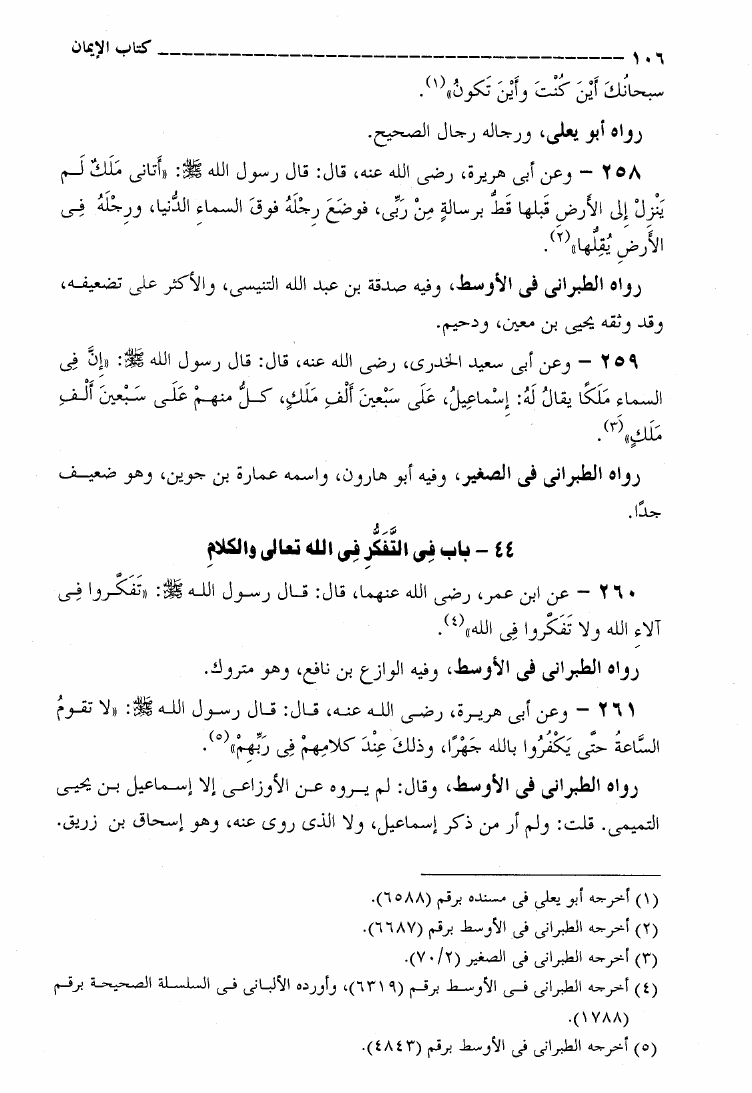 ١٠٦ ـــــــــــــــــــــــــــــــــــــــــــــــــــ كتاب الإيمان
سبحانُكَ أَيْنَ كُنْتَ وأَيْنَ تَكونُ»(١).
رواه أبو يعلى، ورجاله رجال الصحيح.
٢٥٨ – وعن أبى هريرة، رضى الله عنه، قال: قال رسول الله ﷺ: «أَتانى مَلَكٌ لَـم
يَنْزِلْ إِلى الأَرضِ قَبلها قَطُّ برسالةٍ مِنْ رَبِّى، فوضَعَ رِجلَهُ فوقَ السماءِ الدُّنيا، ورِجْلَهُ فِـى
الأَرضِ يُقِلُّها»(٢).
رواه الطبرانى فى الأوسط، وفيه صدقة بن عبد الله التنيسى، والأكثر على تضعيفـه،
وقد وثقه يحيى بن معين، ودحيم.
٢٥٩ – وعن أبى سعيد الخدرى، رضى الله عنه، قال: قال رسول الله ﷺ: «إِنَّ فِى
السماء مَلَكًا يقالُ لَهُ: إِسْماعِيلُ، عَلَى سَبْعينَ أَلْفِ مَلَكٍ، كـلُّ منهمْ عَلَـى سَـبْعينَ أَلْـفِ
مَلَكٍ»(٣).
رواه الطبرانى فى الصغير، وفيه أبو هارون، واسمه عمارة بن جوين، وهو ضعيـف
جدًا.
٤٤ – باب فِى التَّفَكُّرِ فِى الله تعالى والكلامِ
٢٦٠ – عن ابن عمر، رضى الله عنهما، قال: قـال رسول اللـه ﷺ: «تَفَكَّـروا فِـى
آلاءِ الله ولا تَفَكَّروا فِى الله»(٤).
رواه الطبرانى فى الأوسط، وفيه الوازع بن نافع، وهو متروك.
٢٦١ – وعن أبى هريـرة، رضـى اللـه عنـه، قـال: قـال رسول اللـه ﷺ: «لا تقومُ
السَّاعةُ حتَّى يَكْفُرُوا بالله جَهْرًا، وذلكَ عِنْدَ كلامِهِمْ فِى رَبِّهِمْ»(٥).
رواه الطبرانى فى الأوسط، وقال: لم يـروه عـن الأوزاعـى إلا إسـماعيل بـن يحيـى
التميمى. قلت: ولم أر من ذكر إسماعيل، ولا الذى روى عنه، وهو إسحاق بن زريق.
(١) أخرجه أبو يعلى فى مسنده برقم (٦٥٨٨).
(٢) أخرجه الطبرانى فى الأوسط برقم (٦٦٨٧).
(٣) أخرجه الطبرانى فى الصغير (٧٠/٢).
(٤) أخرجه الطبرانى فـى الأوسـط برقـم (٦٣١٩)، وأورده الألبـانى فـى السلسـلة الصحيحـة برقـم
(١٧٨٨).
(٥) أخرجه الطبرانى فى الأوسط برقم (٤٨٤٣).